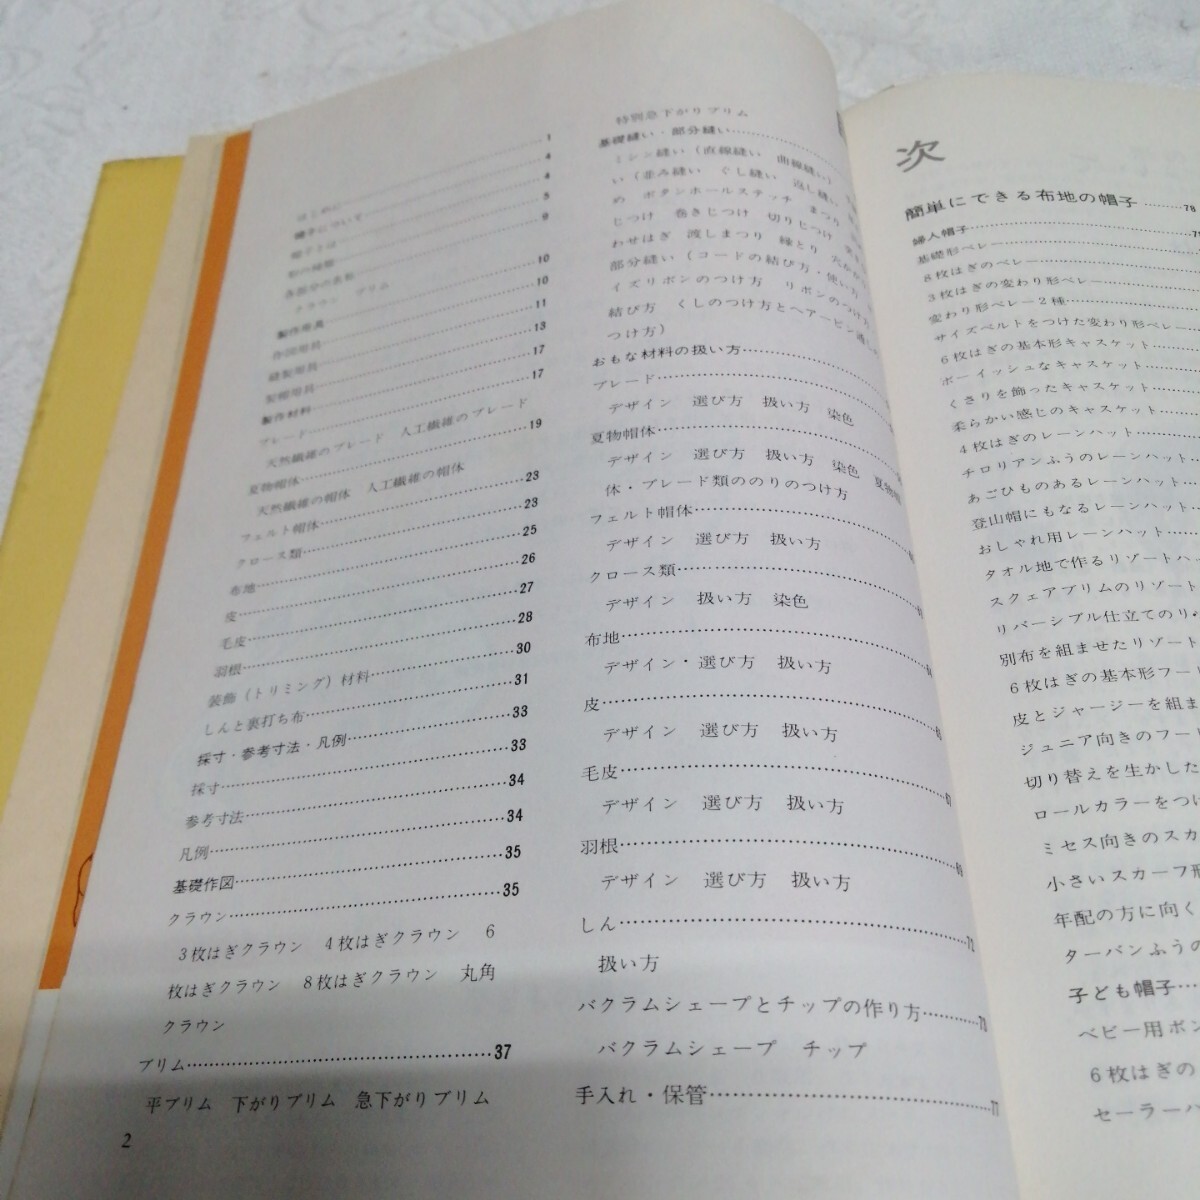 はじめに……1
帽子について……4
帽子とは……4
形の種類……5
各部分の名称……9
クラウン　ブリム
製作用具……10
作図用具……10
縫製用具……11
製帽用具……13
製作材料……17
ブレード……17
天然繊維のブレード　人工繊維のブレード
夏物帽体……19
天然繊維の帽体　人工繊維の帽体
フェルト帽体……23
クロース類……23
布地……25
皮……26
毛皮……27
羽根……28
装飾（トリミング）材料……30
しんと裏打ち布……31
採寸・参考寸法・凡例……33
採寸……33
参考寸法……34
凡例……34
基礎作図……35
クラウン……35
3枚はぎクラウン　4枚はぎクラウン　6
枚はぎクラウン　8枚はぎクラウン　丸角
クラウン
ブリム……37
平ブリム　下がりブリム　急下がりブリム
2
特別急下がりブリム
基礎縫い・部分縫い……
ミシン縫い（直線縫い　曲線縫い）
い（並み縫い　ぐし縫い　返し縫い
め　ボタンホールステッチ　まつり
じつけ　巻きじつけ　切りじつけ
わせはぎ　渡しまつり　縁とり　穴かがり
部分縫い（コードの結び方・使い方
イズリボンのつけ方　リボンのつけ方
結び方　くしのつけ方とヘアーピン通しの
つけ方）
おもな材料の扱い方……
ブレード……
デザイン　選び方　扱い方　染色
夏物帽体……
デザイン　選び方　扱い方　染色　夏物帽
体・ブレード類ののりのつけ方
フェルト帽体……
デザイン　選び方　扱い方
クロース類……
デザイン　扱い方　染色
布地……64
デザイン・選び方　扱い方
皮……
デザイン　選び方　扱い方
毛皮……67
デザイン　選び方　扱い方
羽根……69
デザイン　選び方　扱い方
しん……72
扱い方
バクラムシェープとチップの作り方……73
バクラムシェープ　チップ
手入れ・保管……77
次
簡単にできる布地の帽子……78
婦人帽子……
基礎形ベレー……
8枚はぎのベレー……
3枚はぎの変わり形ベレー……
変わり形ベレー2種……
サイズベルトをつけた変わり形ベレー…
6枚はぎの基本形キャスケット……
ボーイッシュなキャスケット……
くさりを飾ったキャスケット……
柔らかい感じのキャスケット……
4枚はぎのレーンハット……
チロリアンふうのレーンハット…
あごひものあるレーンハット…
登山帽にもなるレーンハット…
おしゃれ用レーンハット……
タオル地で作るリゾートハ
スクェアブリムのリゾート
リバーシブル仕立てのリ
別布を組ませたリゾート
6枚はぎの基本形フー
皮とジャージーを組ま
ジュニア向きのフー
切り替えを生かした
ロールカラーをつけ
ミセス向きのスカ
小さいスカーフ形
年配の方に向く
ターバンふうの
子ども帽子…
ベビー用ボン
6枚はぎの
セーラーハ